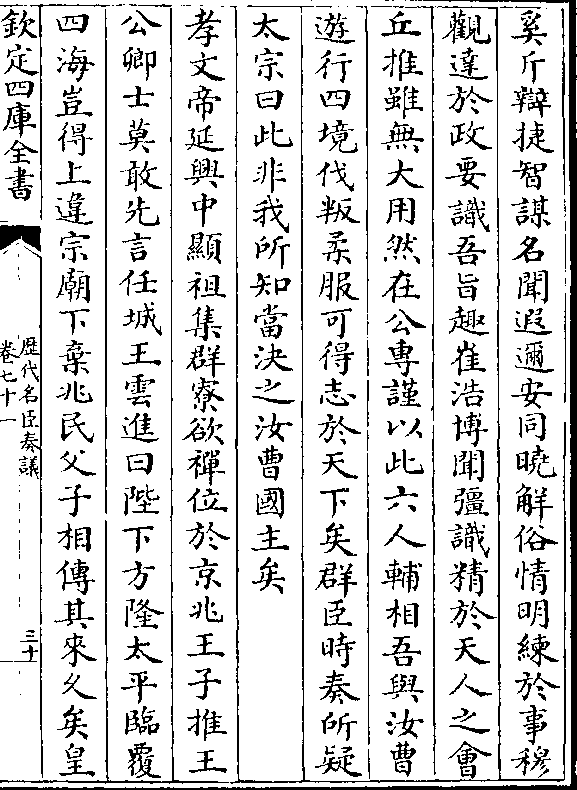 奚斤辯捷智謀名聞遐邇安同曉解俗情明練於事穆
觀達於政要識吾旨趣崔浩博聞彊識精於天人之會
丘堆雖無大用然在公專謹以此六人輔相吾與汝曹
遊行四境伐叛柔服可得志於天下矣群臣時奏所疑
太宗曰此非我所知當決之汝曹國主矣
孝文帝延興中顯祖集群寮欲禪位於京兆王子推王
公卿士莫敢先言任城王雲進曰陛下方隆太平臨覆
四海豈得上違宗廟下棄兆民父子相傳其來久矣皇
欽定四庫全書
歷代名臣奏議
卷七十一
三十